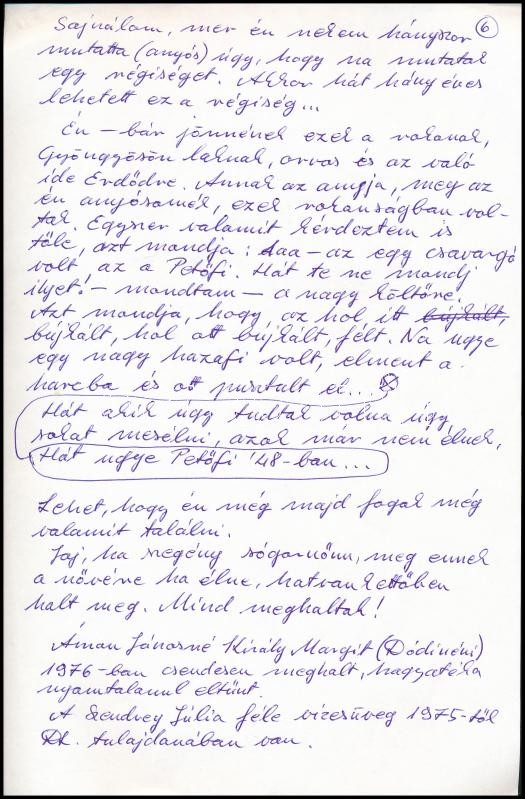 6
Sajnálom, mer én nekem hányszor
mutatta (anyós) úgy, hogy na mutatok
egy régiséget. Akkor hát hány éves
lehetett ez a régiség...
Én – bár jönnének ezek a rokonok,
Gyöngyösön laknak, orvos és az való
ide Erdődre. Annak az anyja, meg az
én anyósomék, ezek rokonságban vol-
tak. Egyszer valamit kérdeztem is
tőle, azt mondja: Aaa – az egy csavargó
volt az a Petőfi. Hát te ne mondj
ilyet! – mondtam – a nagy költőre.
Azt mondja hogy az hol itt bújkált,
bújkált, hol ott bújkált, félt. Na ugye
egy nagy hazafi volt, elment a
harcba és ott pusztult el...
Hát akik úgy tudtak volna úgy
sokat mesélni, azok már nem élnek,
Hát ugye Petőfi '48-ban...
Lehet, hogy én még majd fogok még
valamit találni.
Jaj, ha szegény sógornőm, meg ennek
a nővére ha élne, hatvankettőben
halt meg. Mind meghaltak!
Ámon Jánosné Király Margit (Dódinéni)
1976-ban csendesen meghalt, hagyatéka
nyomtalanul eltűnt.
A Szendrey Júlia féle vizesüveg 1975-től
tulajdonában van.